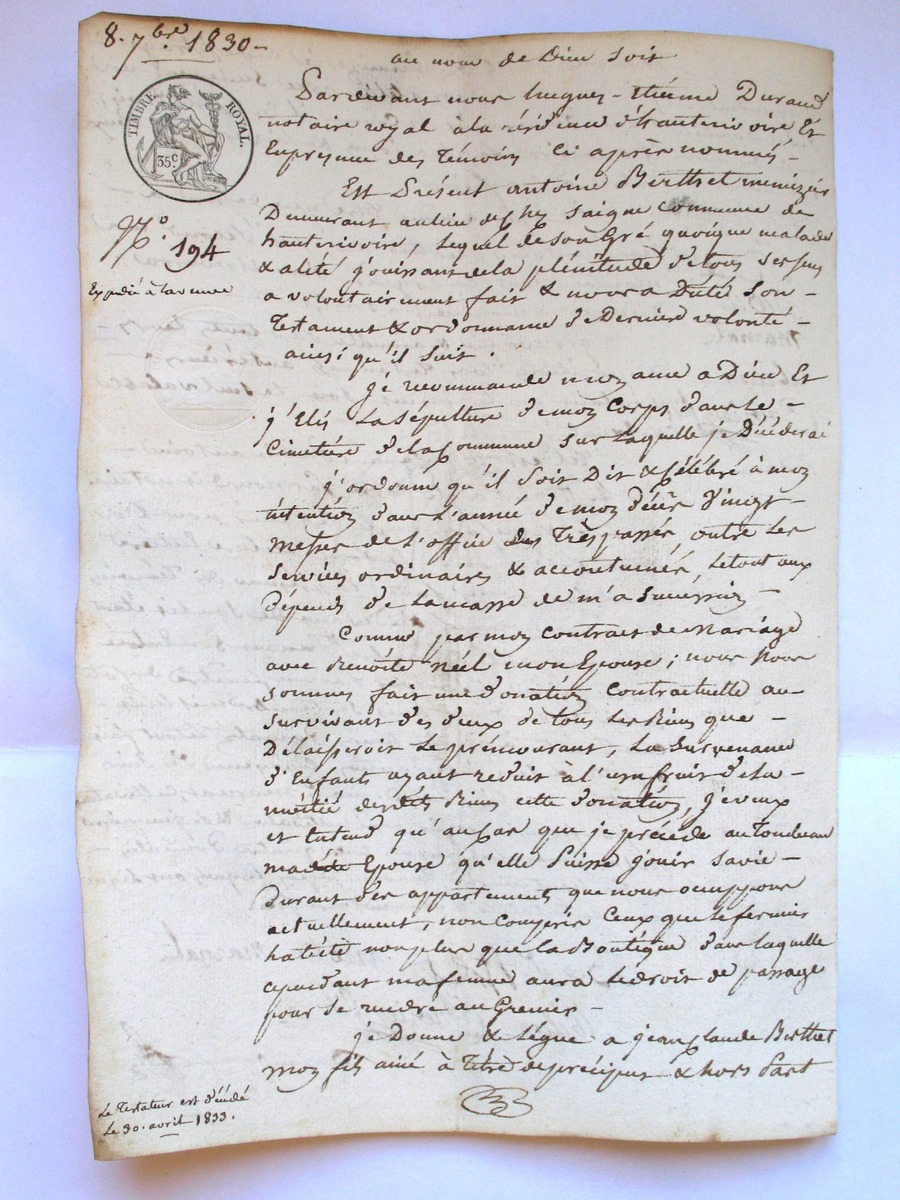 8. 7bre 1830 -
TIMBRE ROYAL.
35c.
No. 194
Expédié à la veuve
au nom de Dieu soit
Pardevant nous hugues-Etienne Durand
notaire royal à la résidence d'hauterivoire Et
En presence des Témoins Ci après nommés -
Est Présent antoine Berthet menuizier
Demeurant au lieu de chez Saigne Commune de
hauterivoire, Lequel de son Gré quoique malade
& alité jouissant de la plénitude de tous ses sens
a volontairement fait & nous a Dicté Son -
Testament & ordonnance de Derniere volonté -
ainsi qu'il suit.
je recommande mon ame a Dieu Et
j'Elis La Sépulture de mon Corps dans Le -
Cimetière de la Commune sur laquelle je Décéderai
j'ordonne qu'il soit Dit & Célébré à mon
intention dans L'année de mon décès Vingt
Messes de L'office des Trépassés, outre Les
services ordinaires & accoutumés, le tout aux
Dépends de La masse de m'a Succession -
Comme par mon Contrat de Mariage
avec Benoîte Néel mon Epouse; nous nous
sommes fait une donation Contractuelle au -
survivant des deux de tous Les Biens que -
Délaisseroit Le prémourant, La Survenance
d'Enfants ayant reduit à l'usufruit de la -
moitié desdits Biens cette donation, je veux
et entend qu'au Cas que je précède au Tombeau
madite Epouse qu'elle Puisse jouir sa vie -
Durant des appartements que nous occuppons
actuellement, non Compris Ceux que Le fermier
habite non plus que la Boutique dans laquelle
cependant ma femme aura le droit de passage
pour se rendre au Grenier -
je Donne & Légue a jean Claude Berthet
mon fils ainé à Titre de préciput & hors Part
Le Testateur est décédé
Le 30. avril 1833.